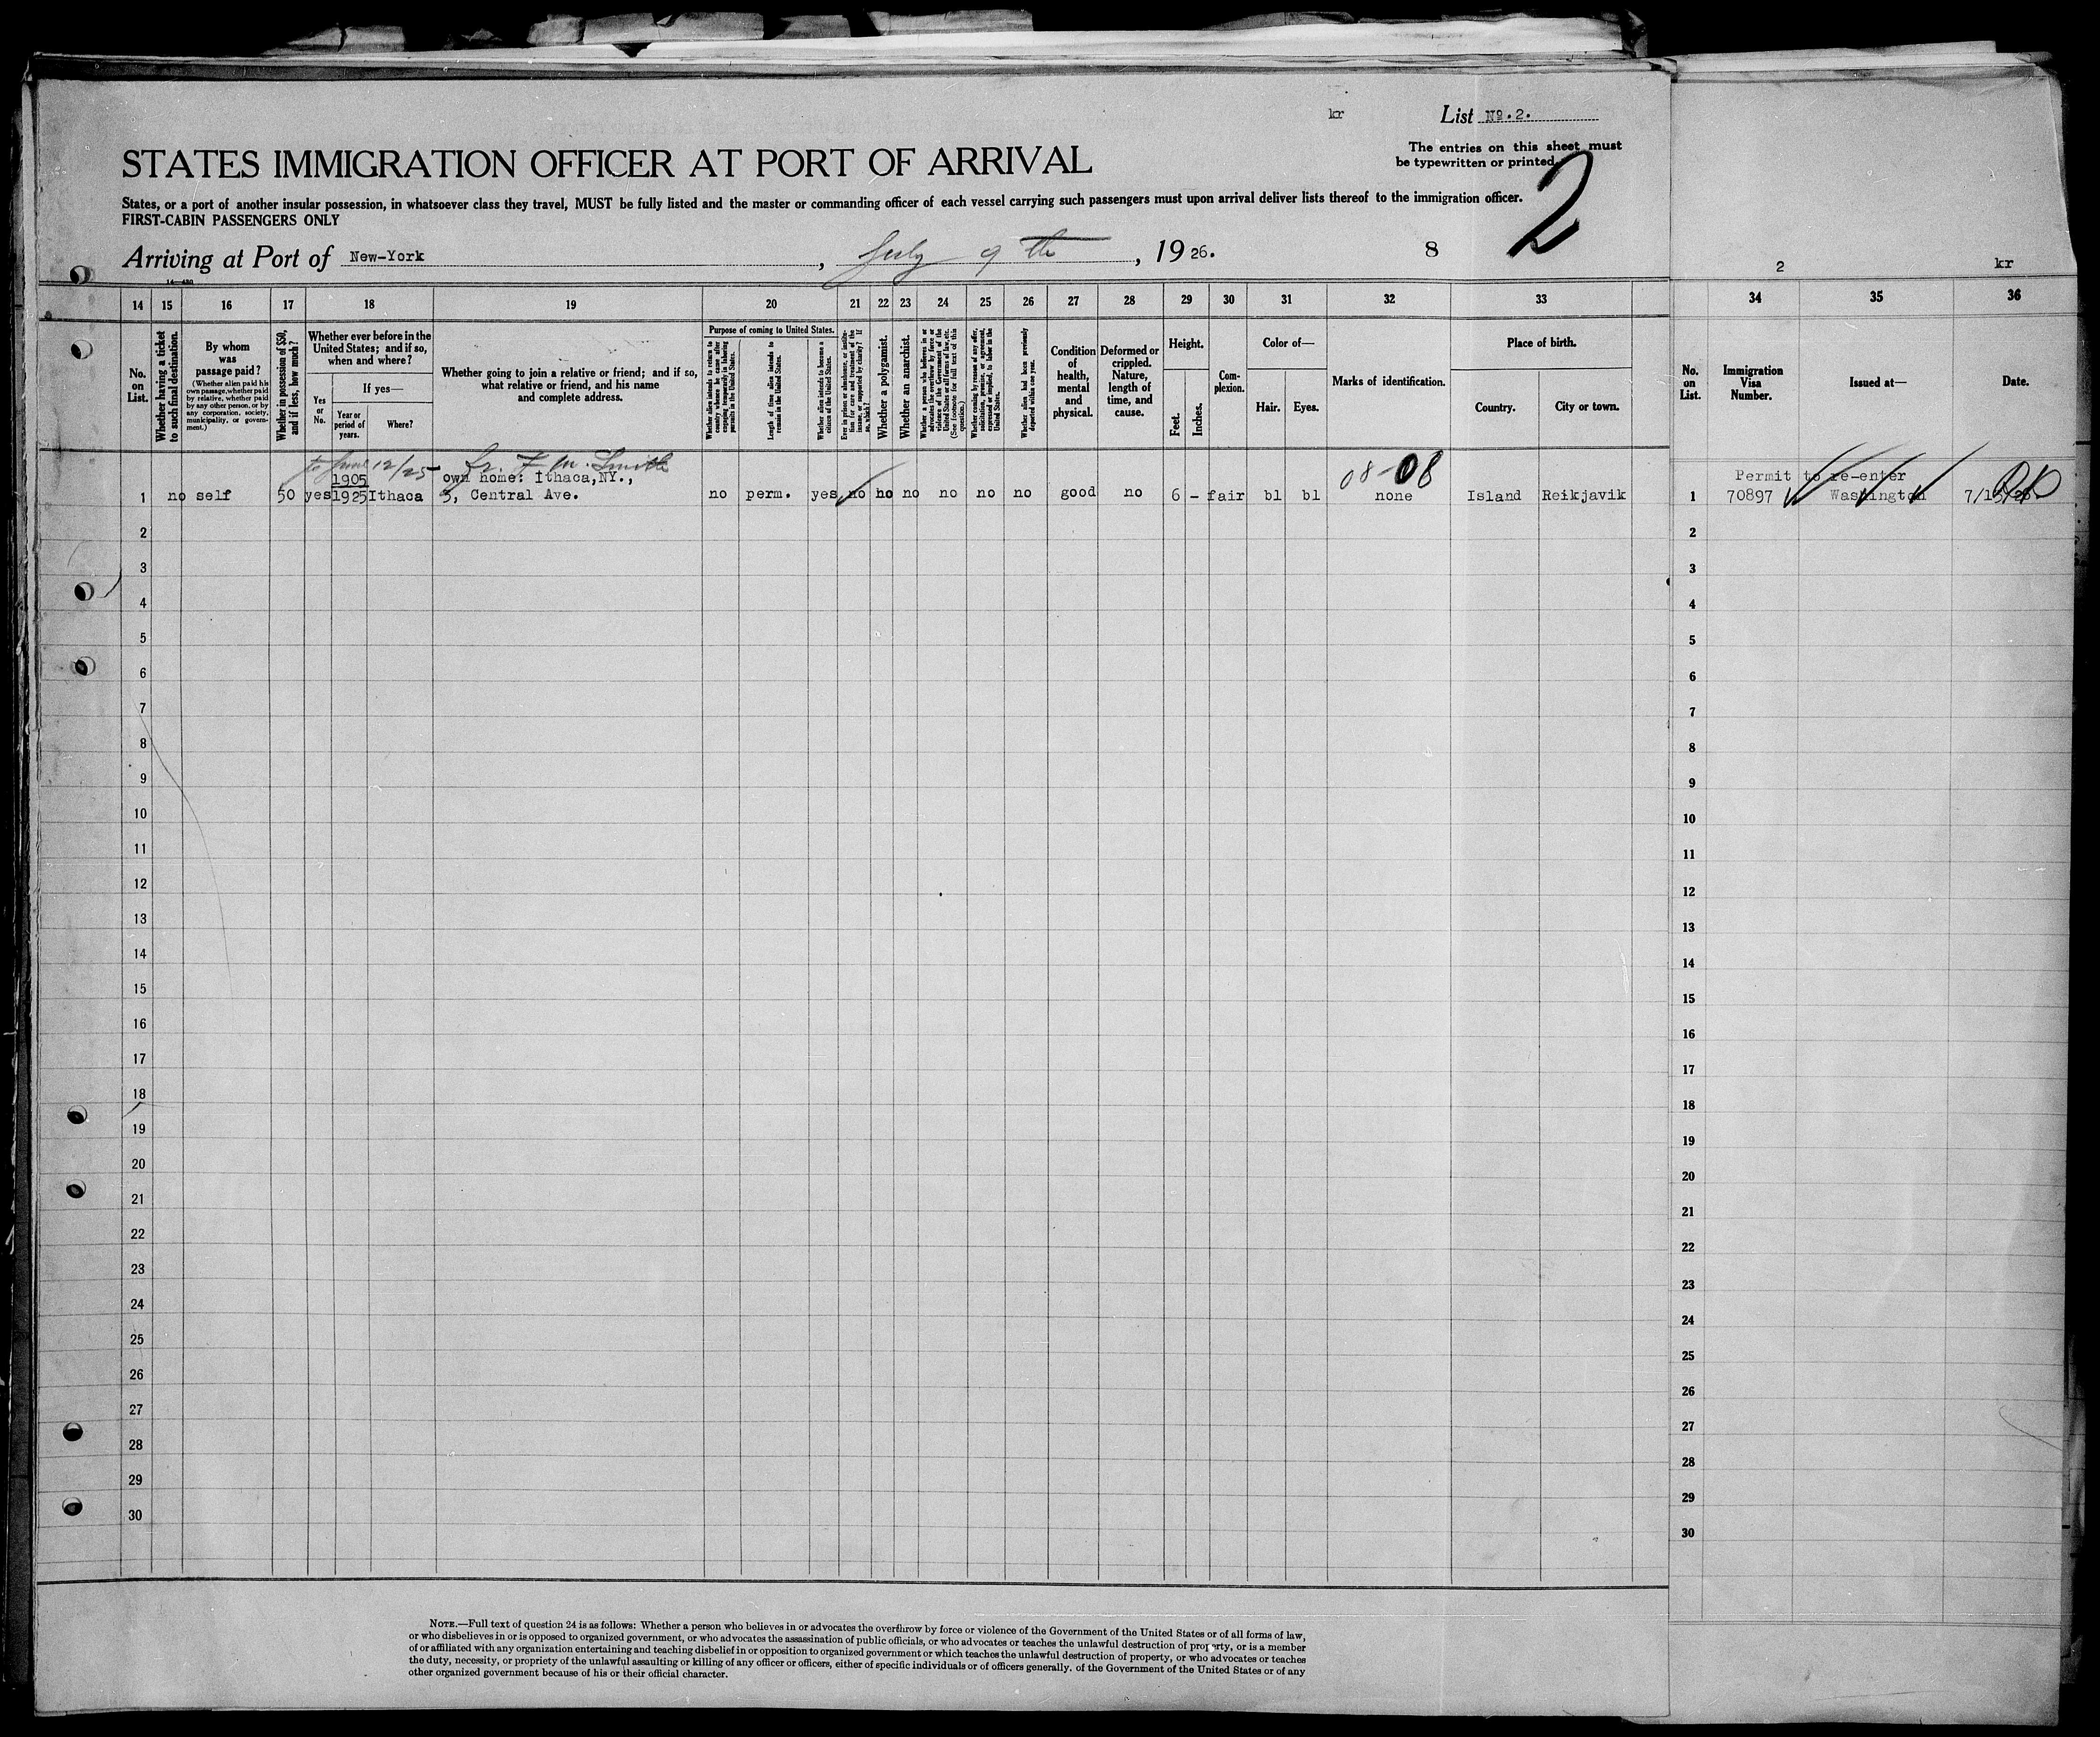 kr
List No. 2.
The entries on this sheet must
be typewritten or printed.
2
STATES IMMIGRATION OFFICER AT PORT OF ARRIVAL
States, or a port of another insular possession, in whatsoever class they travel, MUST be fully listed and the master or commanding officer of each vessel carrying such passengers must upon arrival deliver lists thereof to the immigration officer.
FIRST-CABIN PASSENGERS ONLY
Arriving at Port of New-York, July 9th, 1926.
8
2 kr
14 15 16 17 18 19 20 21 22 23 24 25 26 27 28 29 30 31 32 33
34 35 36
No. on List.
Whether having a ticket to such final destination.
By whom was passage paid?
(Whether alien paid his own passage, whether paid by relative, whether paid by any other person, or by any corporation, society, municipality, or government.)
Whether in possession of $50, and if less, how much?
Whether ever before in the United States; and if so, when and where?
Yes or No.
If yes—
Year or period of years.
Where?
Whether going to join a relative or friend; and if so, what relative or friend, and his name and complete address.
Purpose of coming to United States.
Whether alien intends to return to country whence he came after engaging temporarily in laboring pursuits in the United States.
Length of time alien intends to remain in the United States.
Whether alien intends to become a citizen of the United States.
Ever in prison or almshouse, or institution for care and treatment of the insane, or supported by charity? If so, which?
Whether a polygamist.
Whether an anarchist.
Whether a person who believes in or advocates the overthrow by force or violence of the Government of the United States or all forms of law, etc. (See footnote for full text of this question.)
Whether coming by reason of any offer, solicitation, promise, or agreement, expressed or implied, to labor in the United States.
Whether alien had been previously deported within one year.
Condition of health, mental and physical.
Deformed or crippled. Nature, length of time, and cause.
Height.
Feet.
Inches.
Complexion.
Color of—
Hair.
Eyes.
Marks of identification.
Place of birth.
Country.
City or town.
No. on List.
Immigration Visa Number.
Issued at—
Date.
to June 12/25
1905
own home: Ithaca,NY.,
08-08
Permit to re-enter
1 no self 50 yes 1925 Ithaca 3, Central Ave. no perm. yes no no no no no no good no 6 - fair bl bl none Island Reikjavik
1 70897 Washington
2
3
4
5
6
7
8
9
10
11
12
13
14
15
16
17
18
19
20
21
22
23
24
25
26
27
28
29
30
2
3
4
5
6
7
8
9
10
11
12
13
14
15
16
17
18
19
20
21
22
23
24
25
26
27
28
29
30
NOTE.—Full text of question 24 is as follows: Whether a person who believes in or advocates the overthrow by force or violence of the Government of the United States or of all forms of law,
or who disbelieves in or is opposed to organized government, or who advocates the assassination of public officials, or who advocates or teaches the unlawful destruction of property, or is a member
of or affiliated with any organization entertaining and teaching disbelief in or opposition to organized government or which teaches the unlawful destruction of property, or who advocates or teaches
the duty, necessity, or propriety of the unlawful assaulting or killing of any officer or officers, either of specific individuals or of officers generally. of the Government of the United States or of any
other organized government because of his or their official character.